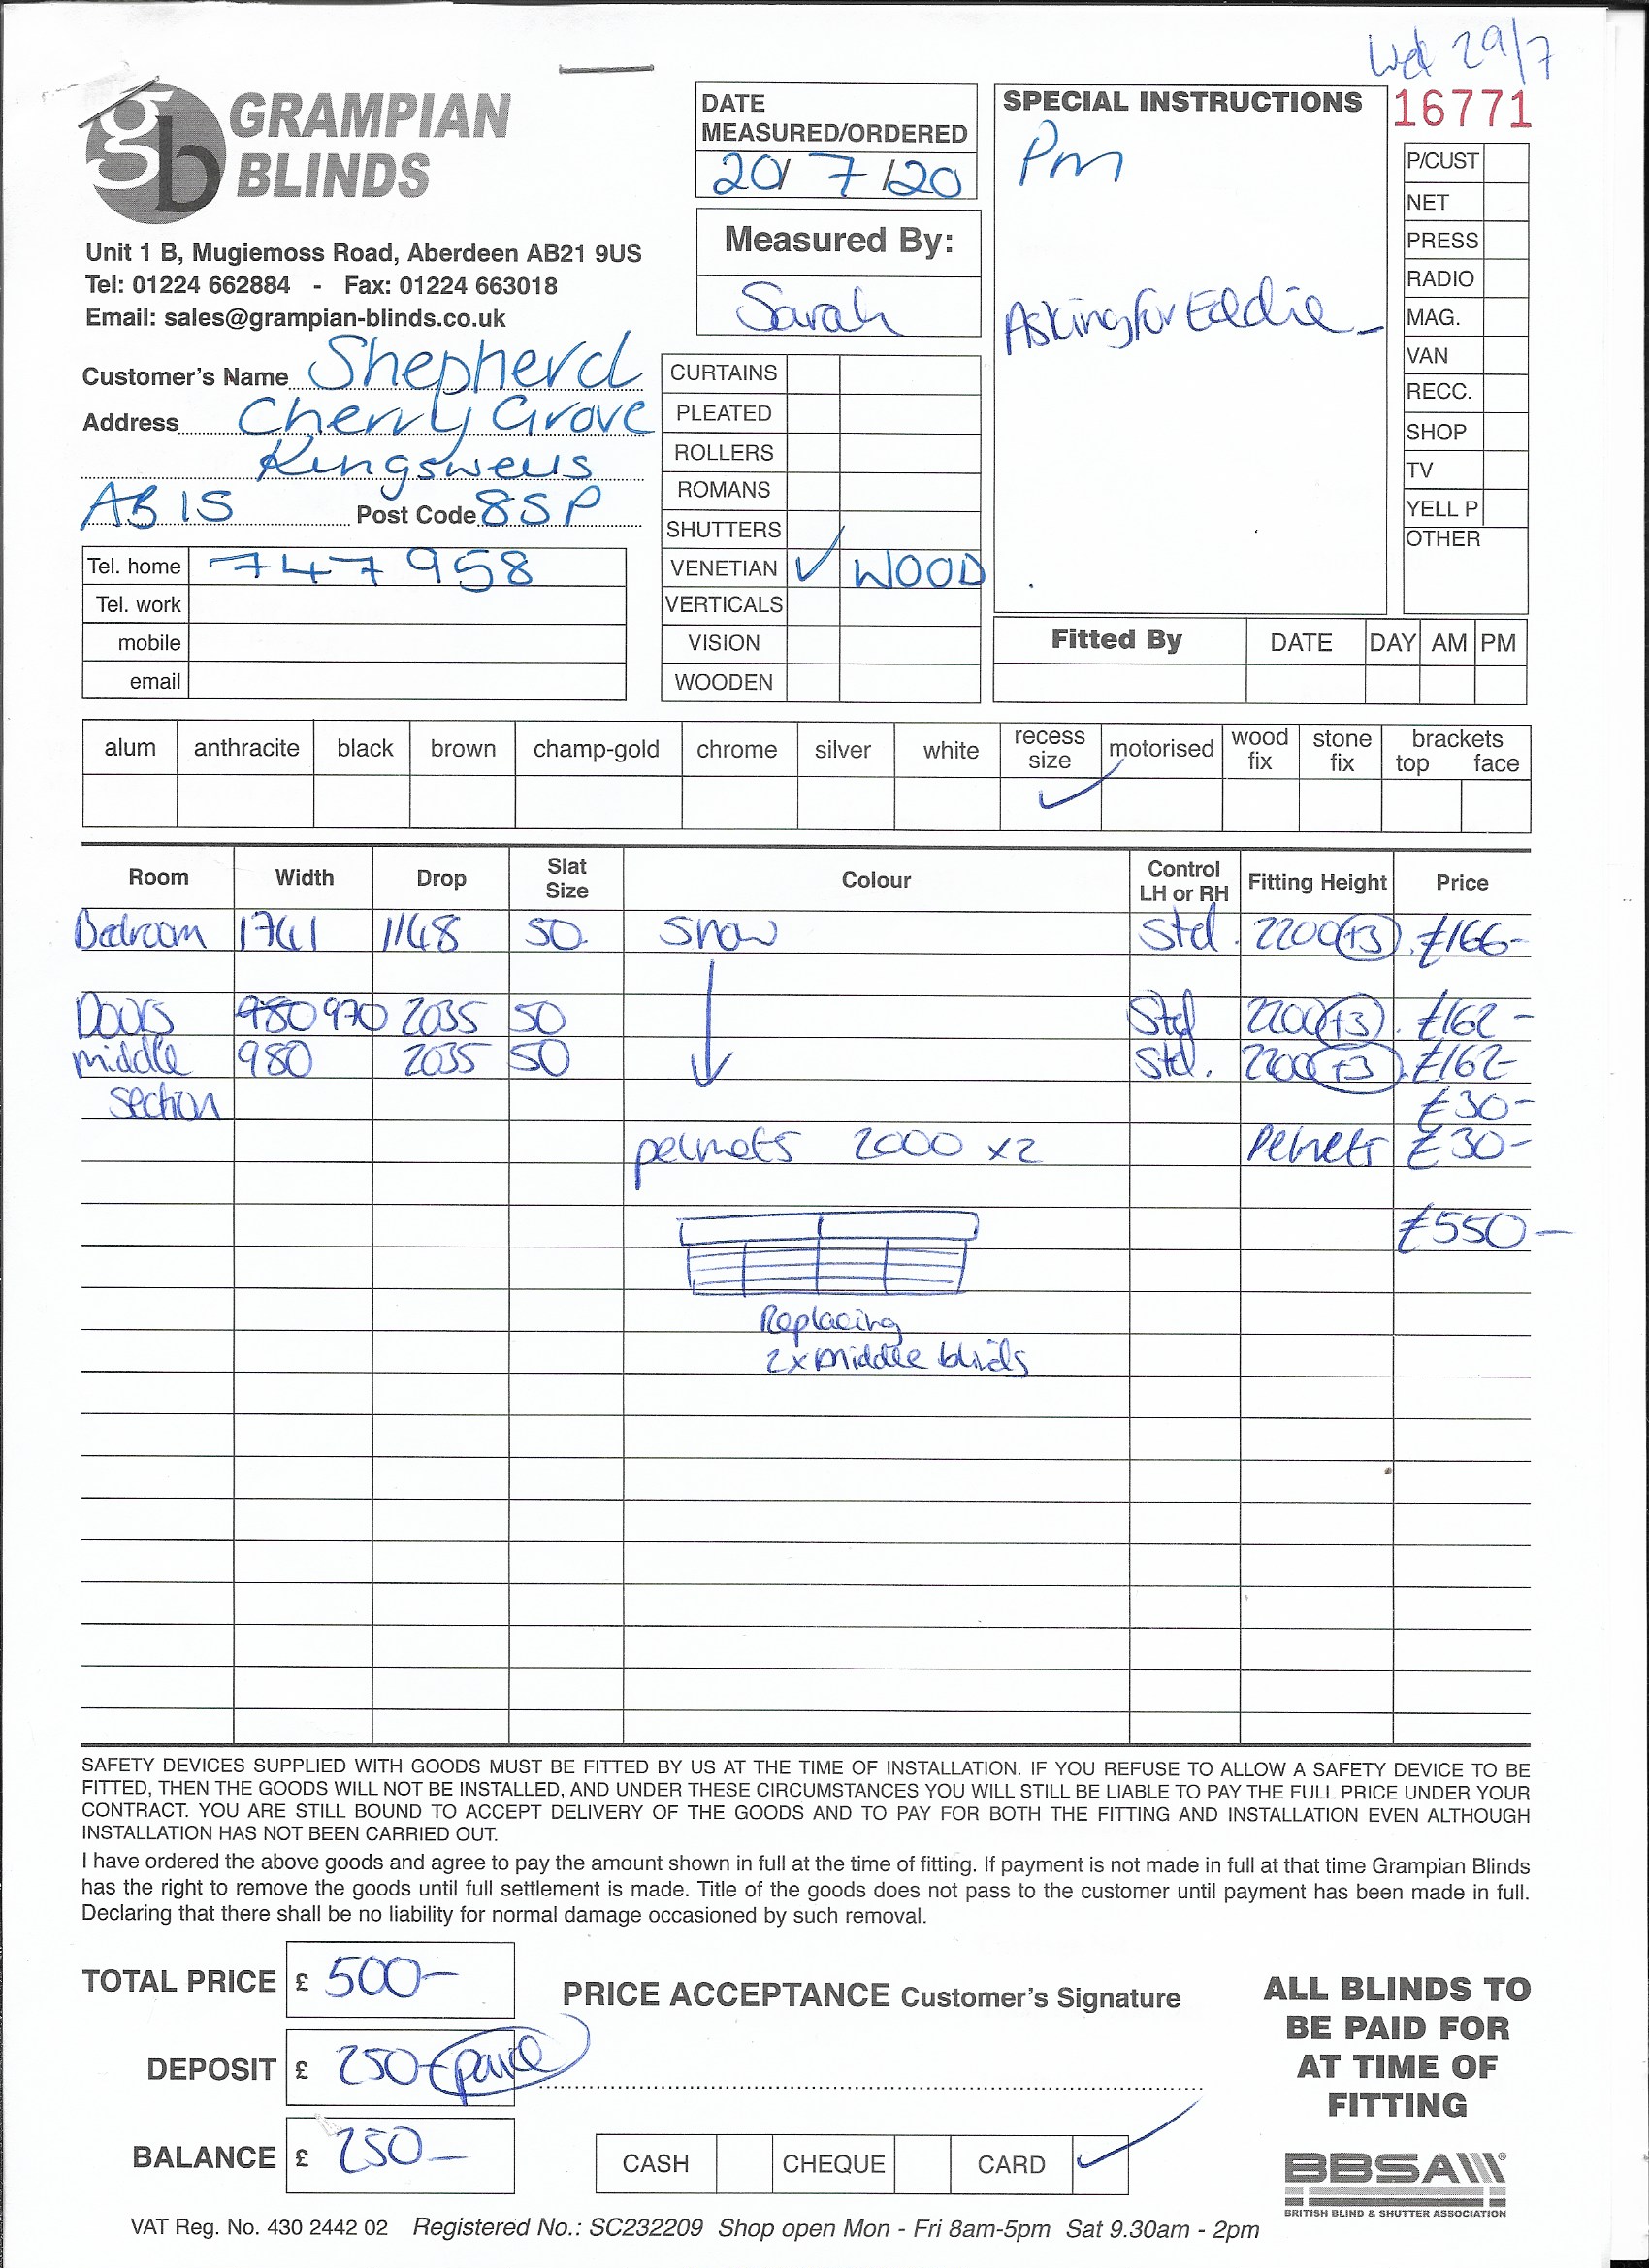 Wed 29/7
gb GRAMPIAN
BLINDS
Unit 1 B, Mugiemoss Road, Aberdeen AB21 9US
Tel: 01224 662884 - Fax: 01224 663018
Email: sales@grampian-blinds.co.uk
Customer's Name Shepherd
Address Cherry Grove
Kingswells
AB15 Post Code 8SP
Tel. home 747958
Tel. work
mobile
email
DATE
MEASURED/ORDERED
20/7/20
Measured By:
Sarah
CURTAINS
PLEATED
ROLLERS
ROMANS
SHUTTERS
VENETIAN ✓ WOOD
VERTICALS
VISION
WOODEN
SPECIAL INSTRUCTIONS
Pm
Asking for Eddie -
16771
P/CUST
NET
PRESS
RADIO
MAG.
VAN
RECC.
SHOP
TV
YELL P
OTHER
Fitted By DATE DAY AM PM
alum anthracite black brown champ-gold chrome silver white recess size motorised wood fix stone fix brackets top face
✓
Room Width Drop Slat Size Colour Control LH or RH Fitting Height Price
Bedroom 1741 1148 50 Snow Std. 2200 (+3). £166-
Doors 980 970 2035 50 Std 2200 (+3). £162-
middle 980 2035 50 Std. 2200 (+3). £162-
section £30-
pelmets 2000 x2 Pelmets £30-
£550-
Replacing
2x middle blinds
SAFETY DEVICES SUPPLIED WITH GOODS MUST BE FITTED BY US AT THE TIME OF INSTALLATION. IF YOU REFUSE TO ALLOW A SAFETY DEVICE TO BE
FITTED, THEN THE GOODS WILL NOT BE INSTALLED, AND UNDER THESE CIRCUMSTANCES YOU WILL STILL BE LIABLE TO PAY THE FULL PRICE UNDER YOUR
CONTRACT. YOU ARE STILL BOUND TO ACCEPT DELIVERY OF THE GOODS AND TO PAY FOR BOTH THE FITTING AND INSTALLATION EVEN ALTHOUGH
INSTALLATION HAS NOT BEEN CARRIED OUT.
I have ordered the above goods and agree to pay the amount shown in full at the time of fitting. If payment is not made in full at that time Grampian Blinds
has the right to remove the goods until full settlement is made. Title of the goods does not pass to the customer until payment has been made in full.
Declaring that there shall be no liability for normal damage occasioned by such removal.
TOTAL PRICE £ 500-
DEPOSIT £ 250- paid
BALANCE £ 250-
PRICE ACCEPTANCE Customer's Signature
CASH CHEQUE CARD ✓
ALL BLINDS TO
BE PAID FOR
AT TIME OF
FITTING
BBSA
BRITISH BLIND & SHUTTER ASSOCIATION
VAT Reg. No. 430 2442 02 Registered No.: SC232209 Shop open Mon - Fri 8am-5pm Sat 9.30am - 2pm